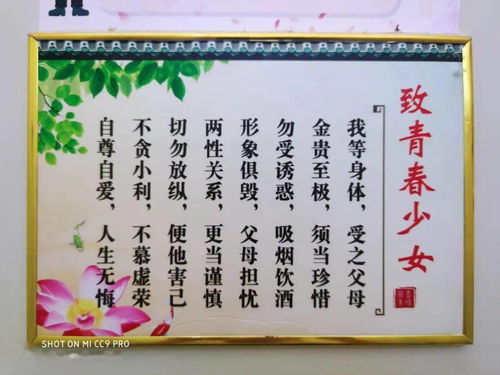 致青春少女
我等身体，受之父母
金贵至极，须当珍惜
勿受诱惑，吸烟饮酒
形象俱毁，父母担忧
两性关系，更当谨慎
切勿放纵，便他害己
不贪小利，不慕虚荣
自尊自爱，人生无悔
SHOT ON MI CC9 PRO